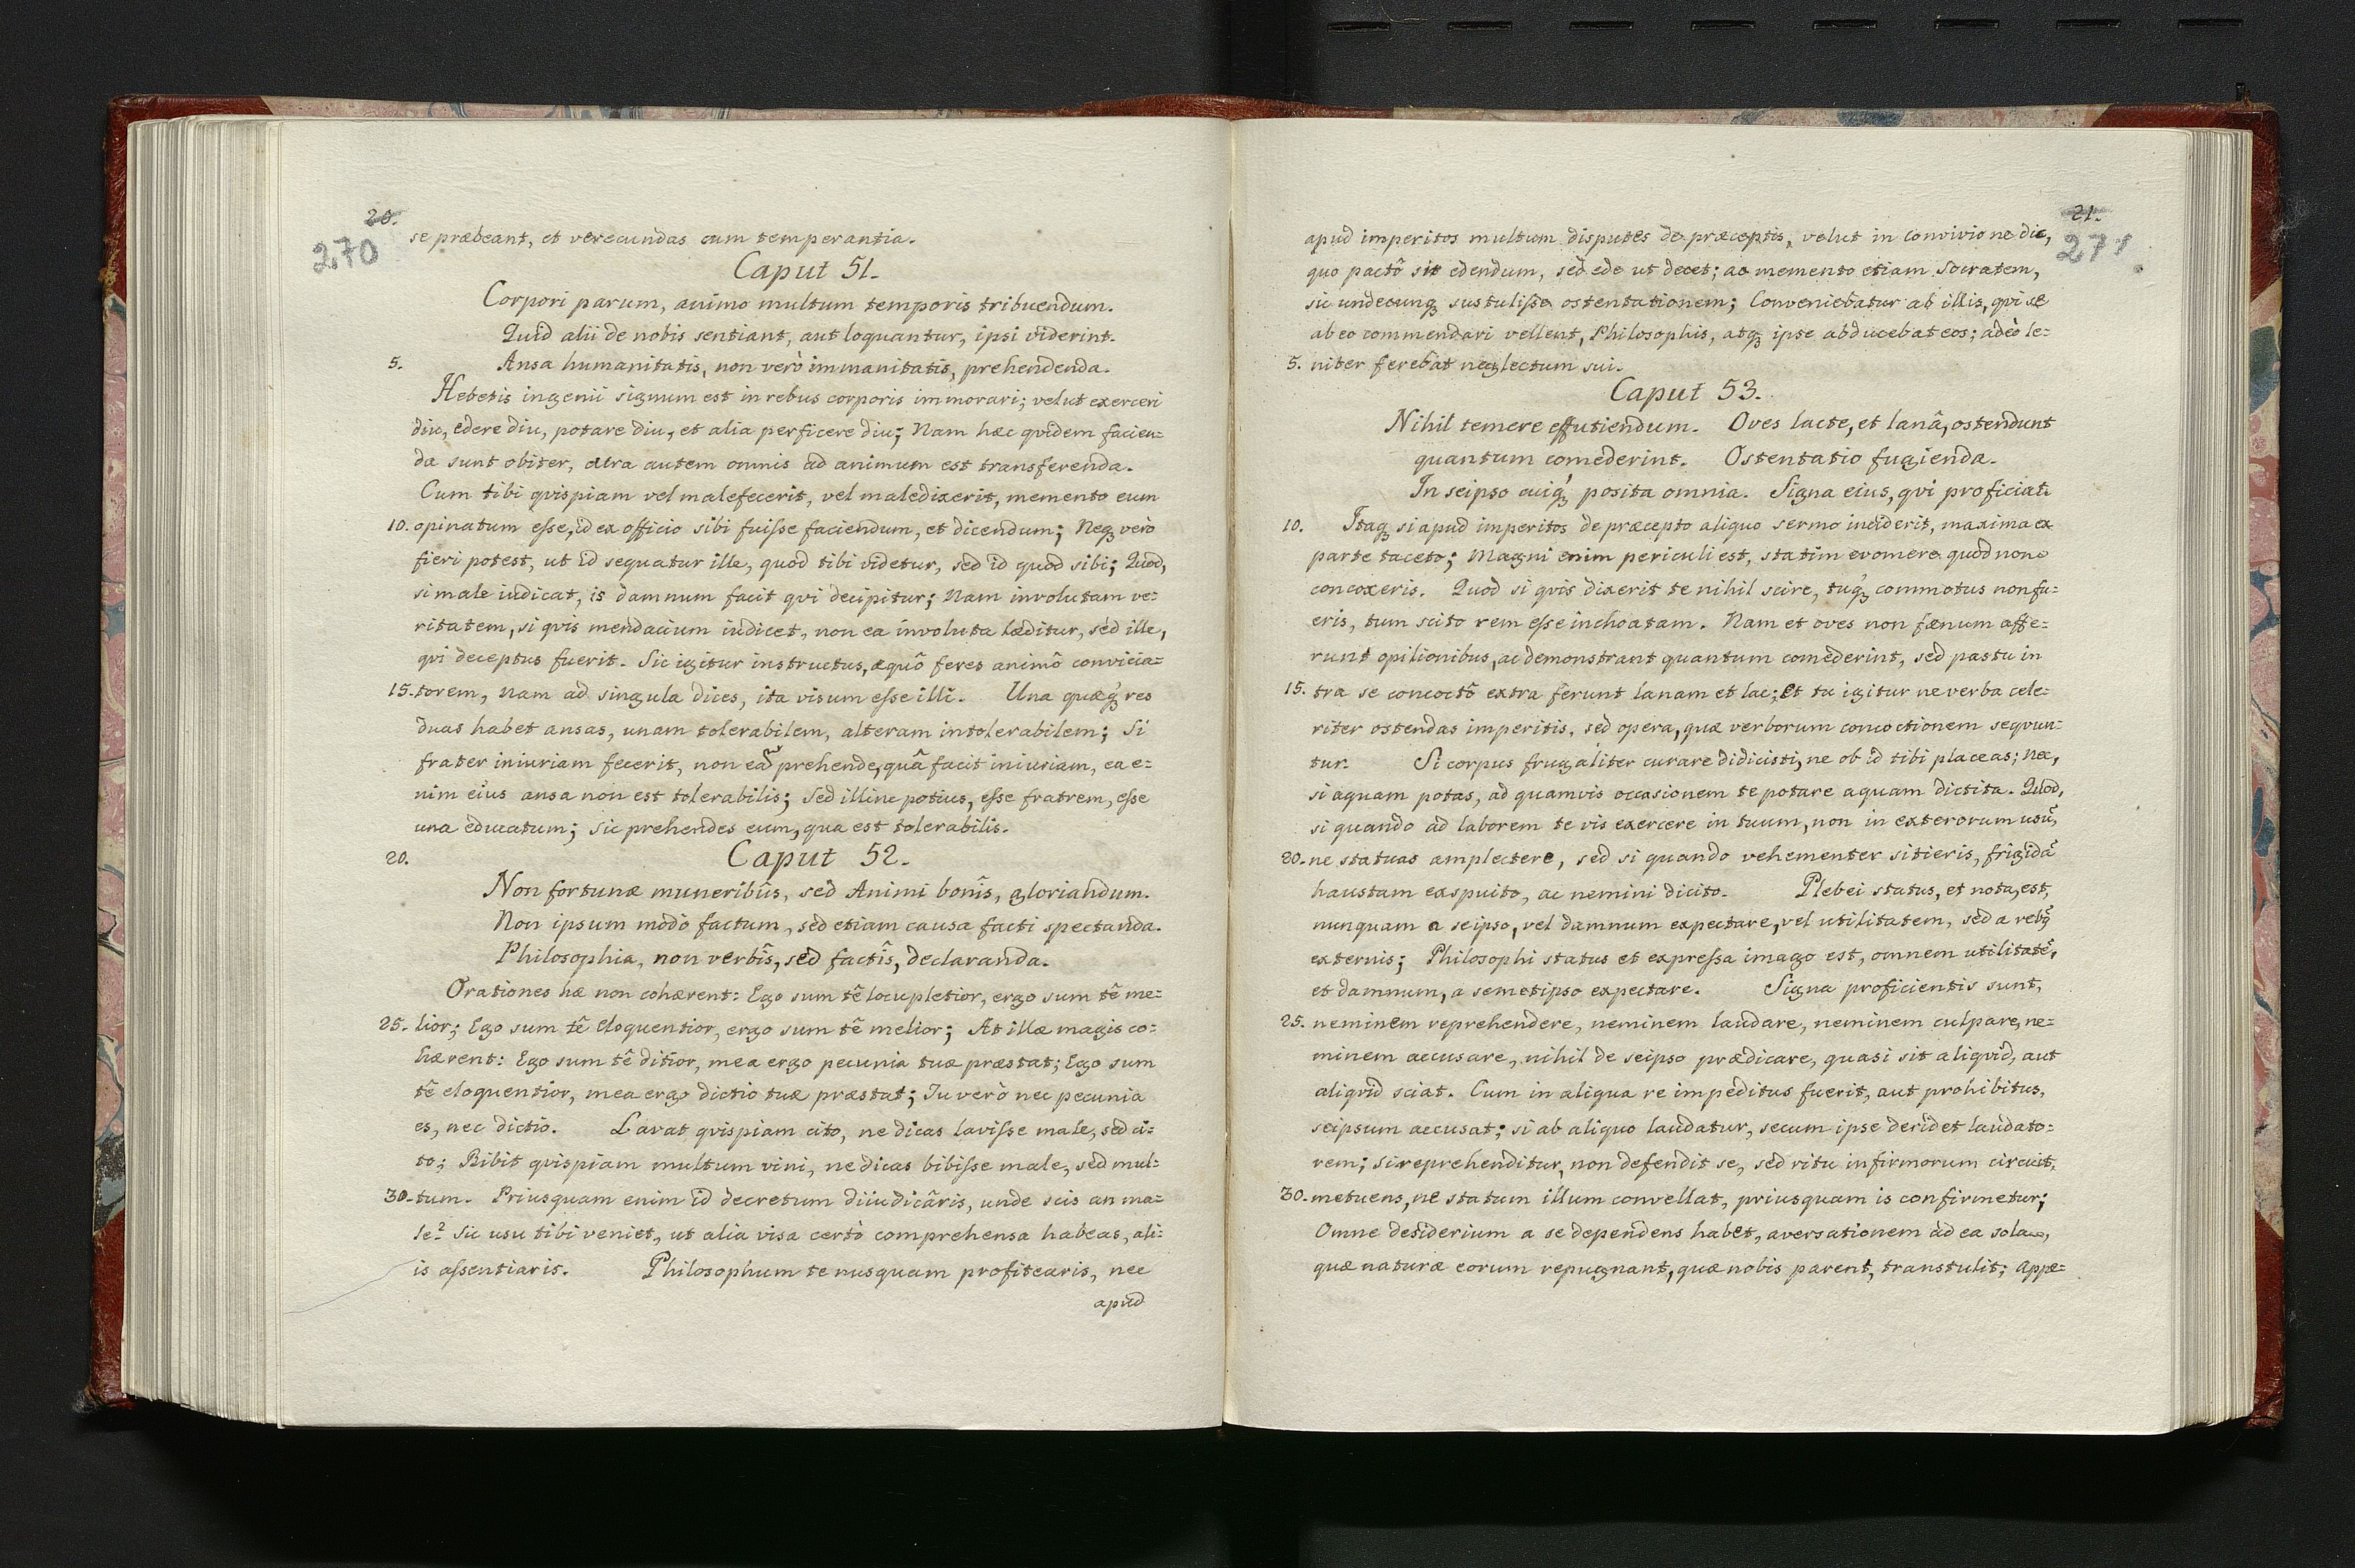 20.
270
se præbeant, et verecundas cum temperantia.
Caput 51.
Corpori parum, animo multum temporis tribuendum.
Quid alii de nobis sentiant, aut loquantur, ipsi viderint.
5. Ansa humanitatis, non verò immanitatis, prehendenda.
Hebetis ingenii signum est in rebus corporis immorari; velut exerceri
diu, edere diu, potare diu, et alia perficere diu; Nam hæc qvidem facien=
da sunt obiter, cura autem omnis ad animum est transferenda.
Cum tibi qvispiam vel malefecerit, vel maledixerit, memento eum
10. opinatum esse, id ex officio sibi fuisse faciendum, et dicendum; Neqꝫ verò
fieri potest, ut id sequatur ille, quod tibi videtur, sed id quod sibi; Quod,
si male iudicat, is damnum facit qvi decipitur; Nam involutam ve=
ritatem, si qvis mendacium iudicet, non ea involuta læditur, sed ille,
qvi deceptus fuerit. Sic igitur instructus, æquô feres animô convicia=
15. torem, nam ad singula dices, ita visum esse illi. Una quæqꝫ res
duas habet ansas, unam tolerabilem, alteram intolerabilem; Si
frater iniuriam fecerit, non eam prehende, quâ facit iniuriam, ea e=
nim eius ansa non est tolerabilis; Sed illinc potius, esse fratrem, esse
una educatum; sic prehendes eum, qua est tolerabilis.
20. Caput 52.
Non fortunæ muneribûs, sed Animi bonîs, gloriandum.
Non ipsum modò factum, sed etiam causa facti spectanda.
Philosophia, non verbîs, sed factîs, declaranda.
Orationes hæ non cohærent: Ego sum tê locupletior, ergo sum tê me=
25. lior; Ego sum tê eloquentior, ergo sum tê melior; At illæ magis co=
hærent: Ego sum tê ditior, mea ergo pecunia tuæ præstat; Ego sum
tê eloquentior, mea ergo dictio tuæ præstat; Tu verò nec pecunia
es, nec dictio. Lavat qvispiam cito, ne dicas lavisse male, sed ci=
to; Bibit qvispiam multum vini, ne dicas bibisse male, sed mul=
30. tum. Priusquam enim id decretum diiudicâris, unde scis an ma=
le? Sic usu tibi veniet, ut alia visa certò comprehensa habeas, ali=
is assentiaris. Philosophum te nusquam profitearis, nec
apud
21.
271
apud imperitos multum disputes de præceptis, velut in convivio ne dic,
quo pactô sit edendum, sed ede ut decet; ac memento etiam Socratem,
sic undecunqꝫ sustulisse ostentationem; Conveniebatur ab illis, qvi se
ab eo commendari vellent, Philosophis, atqꝫ ipse abducebat eos; adeò le=
5. niter ferebat neglectum sui.
Caput 53.
Nihil temere effutiendum. Oves lacte, et lanâ, ostendunt
quantum comederint. Ostentatio fugienda.
In seipso cuiqꝫ posita omnia. Signa eius, qvi proficiat.
10. Itaqꝫ si apud imperitos de præcepto aliquo sermo inciderit, maxima ex
parte taceto; Magni enim periculi est, statim evomere quod non
concoxeris. Quod si qvis dixerit te nihil scire, tuqꝫ commotus non fu=
eris, tum scito rem esse inchoatam. Nam et oves non fænum affe=
runt opilionibus, ac demonstrant quantum comederint, sed pastu in
15. tra se concoctô extra ferunt lanam et lac; Et tu igitur ne verba cele=
riter ostendas imperitis, sed opera, quæ verborum concoctionem seqvun=
tur. Si corpus frugaliter curare didicisti, ne ob id tibi placeas; nec,
si aquam potas, ad quamvis occasionem te potare aquam dictita. Quod,
si quando ad laborem te vis exercere in tuum, non in exterorum usũ,
20. ne statuas amplectere, sed si quando vehementer sitieris, frigidã
haustam exspuito, ac nemini dicito. Plebei status, et nota, est,
nunquam a seipso, vel damnum expectare, vel utilitatem, sed a rebꝫ
externis; Philosophi status et expressa imago est, omnem utilitatẽ,
et damnum, a semetipso expectare. Signa proficientis sunt,
25. neminem reprehendere, neminem laudare, neminem culpare, ne=
minem accusare, nihil de seipso prædicare, quasi sit aliqvid, aut
aliqvid sciat. Cum in aliqua re impeditus fuerit, aut prohibitus,
seipsum accusat; si ab aliquo laudatur, secum ipse deridet laudato=
rem; si reprehenditur, non defendit se, sed ritu infirmorum circuit,
30. metuens, ne statum illum convellat, priusquam is confirmetur;
Omne desiderium a se dependens habet, aversationem ad ea sola,
quæ naturæ eorum repugnant, quæ nobis parent, transtulit; Appe=